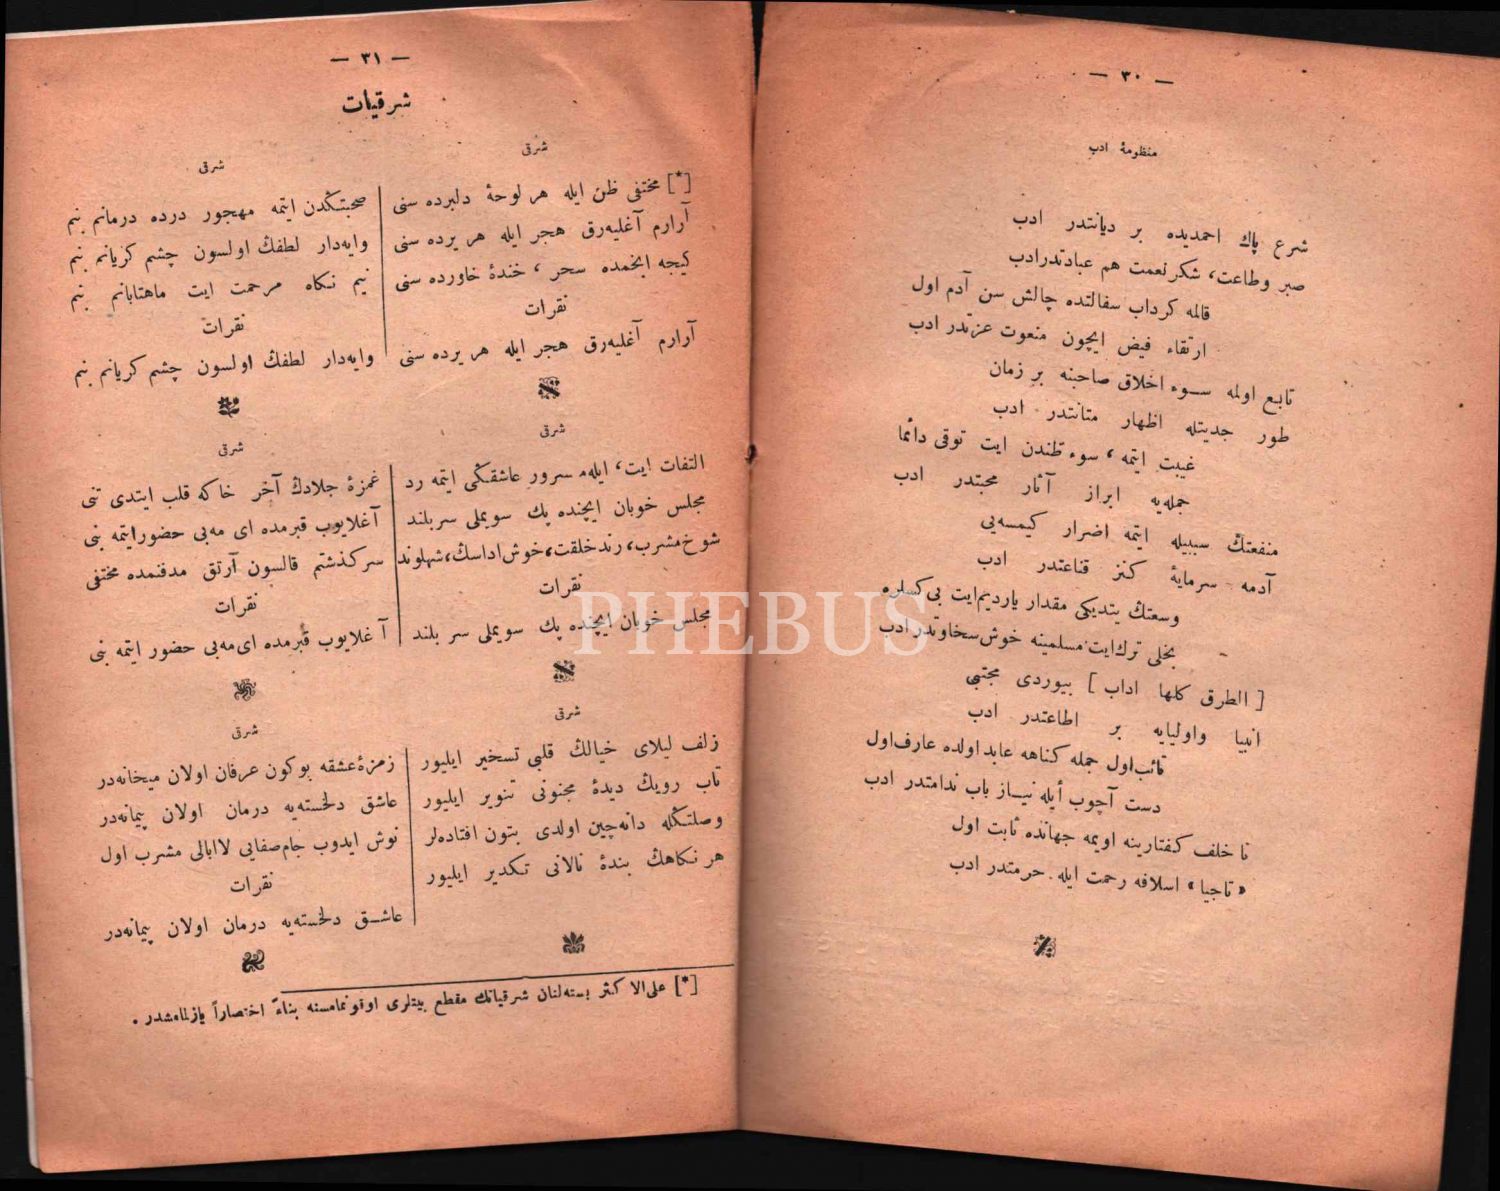 — ٣٠ —
منظومهٔ ادب
شرع پاك احمدیده بر دیانتدر ادب
صبر وطاعت، شكر نعمت هم عبادتدر ادب
قالمه كرداب سفالتده چالش سن آدم اول
ارتقاء فیض ایچون منعوت عزتدر ادب
تابع اولمه سوء اخلاق صاحبنه بر زمان
طور جدیتله اظهار متانتدر ادب
غیبت ایتمه، سوء ظندن ایت توقی دائما
جمله‌یه ابراز آثار محبتدر ادب
منفعتڭ سببیله ایتمه اضرار كیمسه‌یی
آدمه سرمایهٔ كنز قناعتدر ادب
وسعتڭ یتدیكی مقدار یاردیم ایت بی كسلره
بخلی ترك ایت مسلمینه خوش سخاوتدر ادب
[ الطرق كلها اداب ] بیوردی مجتبی
انبیا واولیایه بر اطاعتدر ادب
تائب اول جمله كناهه عابد اولده عارف اول
دست آچوب أیله نیاز باب ندامتدر ادب
نا خلف كفتارینه اویمه جهانده ثابت اول
«تاجیا» اسلافه رحمت ایله حرمتدر ادب
— ٣١ —
شرقیات
شرقی
[*] مختفی ظن ایله هر لوحهٔ دلبرده سنی
آرارم آغلیه‌رق هجر ایله هر یرده سنی
كیجه انجمده سحر، خندهٔ خاورده سنی
نقرات
آرارم آغلیه‌رق هجر ایله هر یرده سنی
شرقی
التفات ایت، ایله مسرور عاشقڭی ایتمه رد
مجلس خوبان ایچنده پك سویملی سر بلند
شوخ مشرب، رند خلقت، خوش اداسڭ، شهلوند
نقرات
مجلس خوبان ایچنده پك سویملی سر بلند
شرقی
زلف لیلای خیالڭ قلبی تسخیر ایلیور
تاب رویڭ دیدهٔ مجنونی تنویر ایلیور
وصلتڭله دانه‌چین اولدی بتون افتاده‌لر
هر نكاهڭ بندهٔ نالانی تكدیر ایلیور
شرقی
صحبتڭدن ایتمه مهجور درده درمانم بنم
وایه‌دار لطفڭ اولسون چشم كریانم بنم
نیم نكاه مرحمت ایت ماهتابانم بنم
نقرات
وایه‌دار لطفڭ اولسون چشم كریانم بنم
شرقی
غمزهٔ جلادڭ آخر خاكه قلب ایتدی تنی
آغلایوب قبرمده ای مه بی حضور ایتمه بنی
سركذشتم قالسون آرتق مدفنمده مختفی
نقرات
آغلایوب قبرمده ای مه بی حضور ایتمه بنی
شرقی
زمزهٔ عشقه بوكون عرفان اولان میخانه‌در
عاشق دلخسته‌یه درمان اولان پیمانه‌در
نوش ایدوب جام صفایی لاابالی مشرب اول
نقرات
عاشق دلخسته‌یه درمان اولان پیمانه‌در
[*] علی الاكثر بسته‌لنان شرقیاتڭ مقطع بیتلری اوقونمامسنه بناءً اختصاراً یازلمامشدر .
PHEBUS